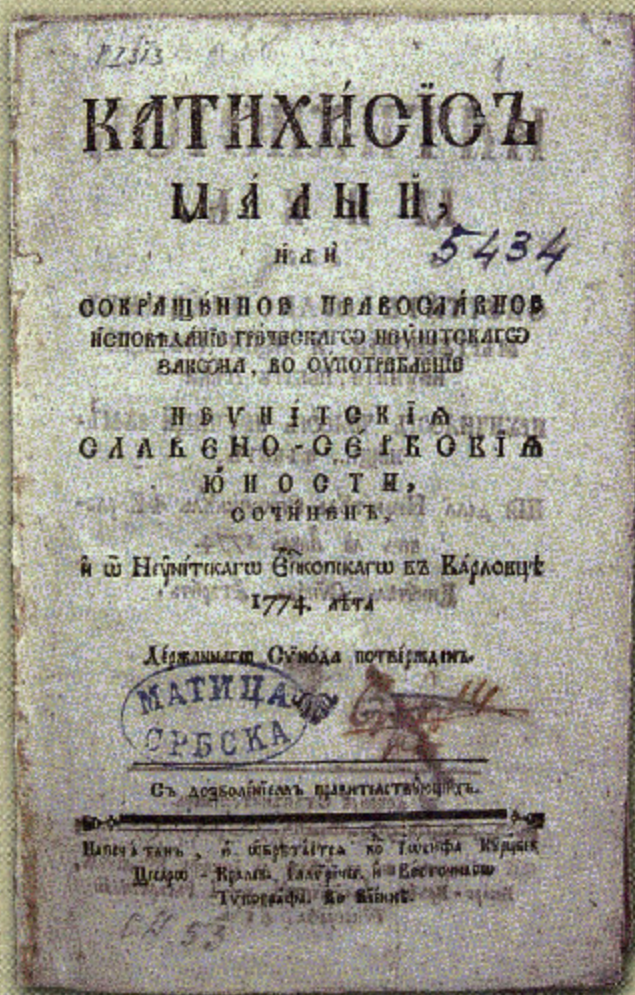 Р1313
КАТИХИ́СІСЪ
МА́ЛЫЙ,
И҆ЛЍ
5434
СОКРАЩЕ́ННОЕ ПРАВОСЛА́ВНОЕ
И҆СПОВѢ́ДАНІЕ ГРЕ́ЧЕСКАГѠ НЕꙊНІ́ТСКАГѠ
ЗАКѠ́НА, ВО ОУ҆ПОТРЕБЛЕ́НІЕ
НЕѴНІ́ТСКІѦ
СЛАВЕ́НО-СЕ́РБСКІѦ
Ю҆́НОСТИ,
СОЧИНЕ́НЪ,
и҆ ѿ Неѵні́тскагѡ Є҆пⷭ҇копскагѡ въ Ка́рловцѣ
1774. лѣ́та
Де́ржаннагѡ Сѵно́да потве́ржденъ.
МАТИЦА
СРБСКА
Съ дозволе́ніемъ прави́тельствꙋющихъ.
Напеча́танъ, и҆ ѡ҆брѣта́етсѧ ко І҆ѡ́сифа Кꙋ́рцбек
Цесарѡ-Кралев. І҆ллѵ́рїческ. и҆ Восто́чнагѡ
Тѵпогра́фа. Во Вїе́ннѣ.
53